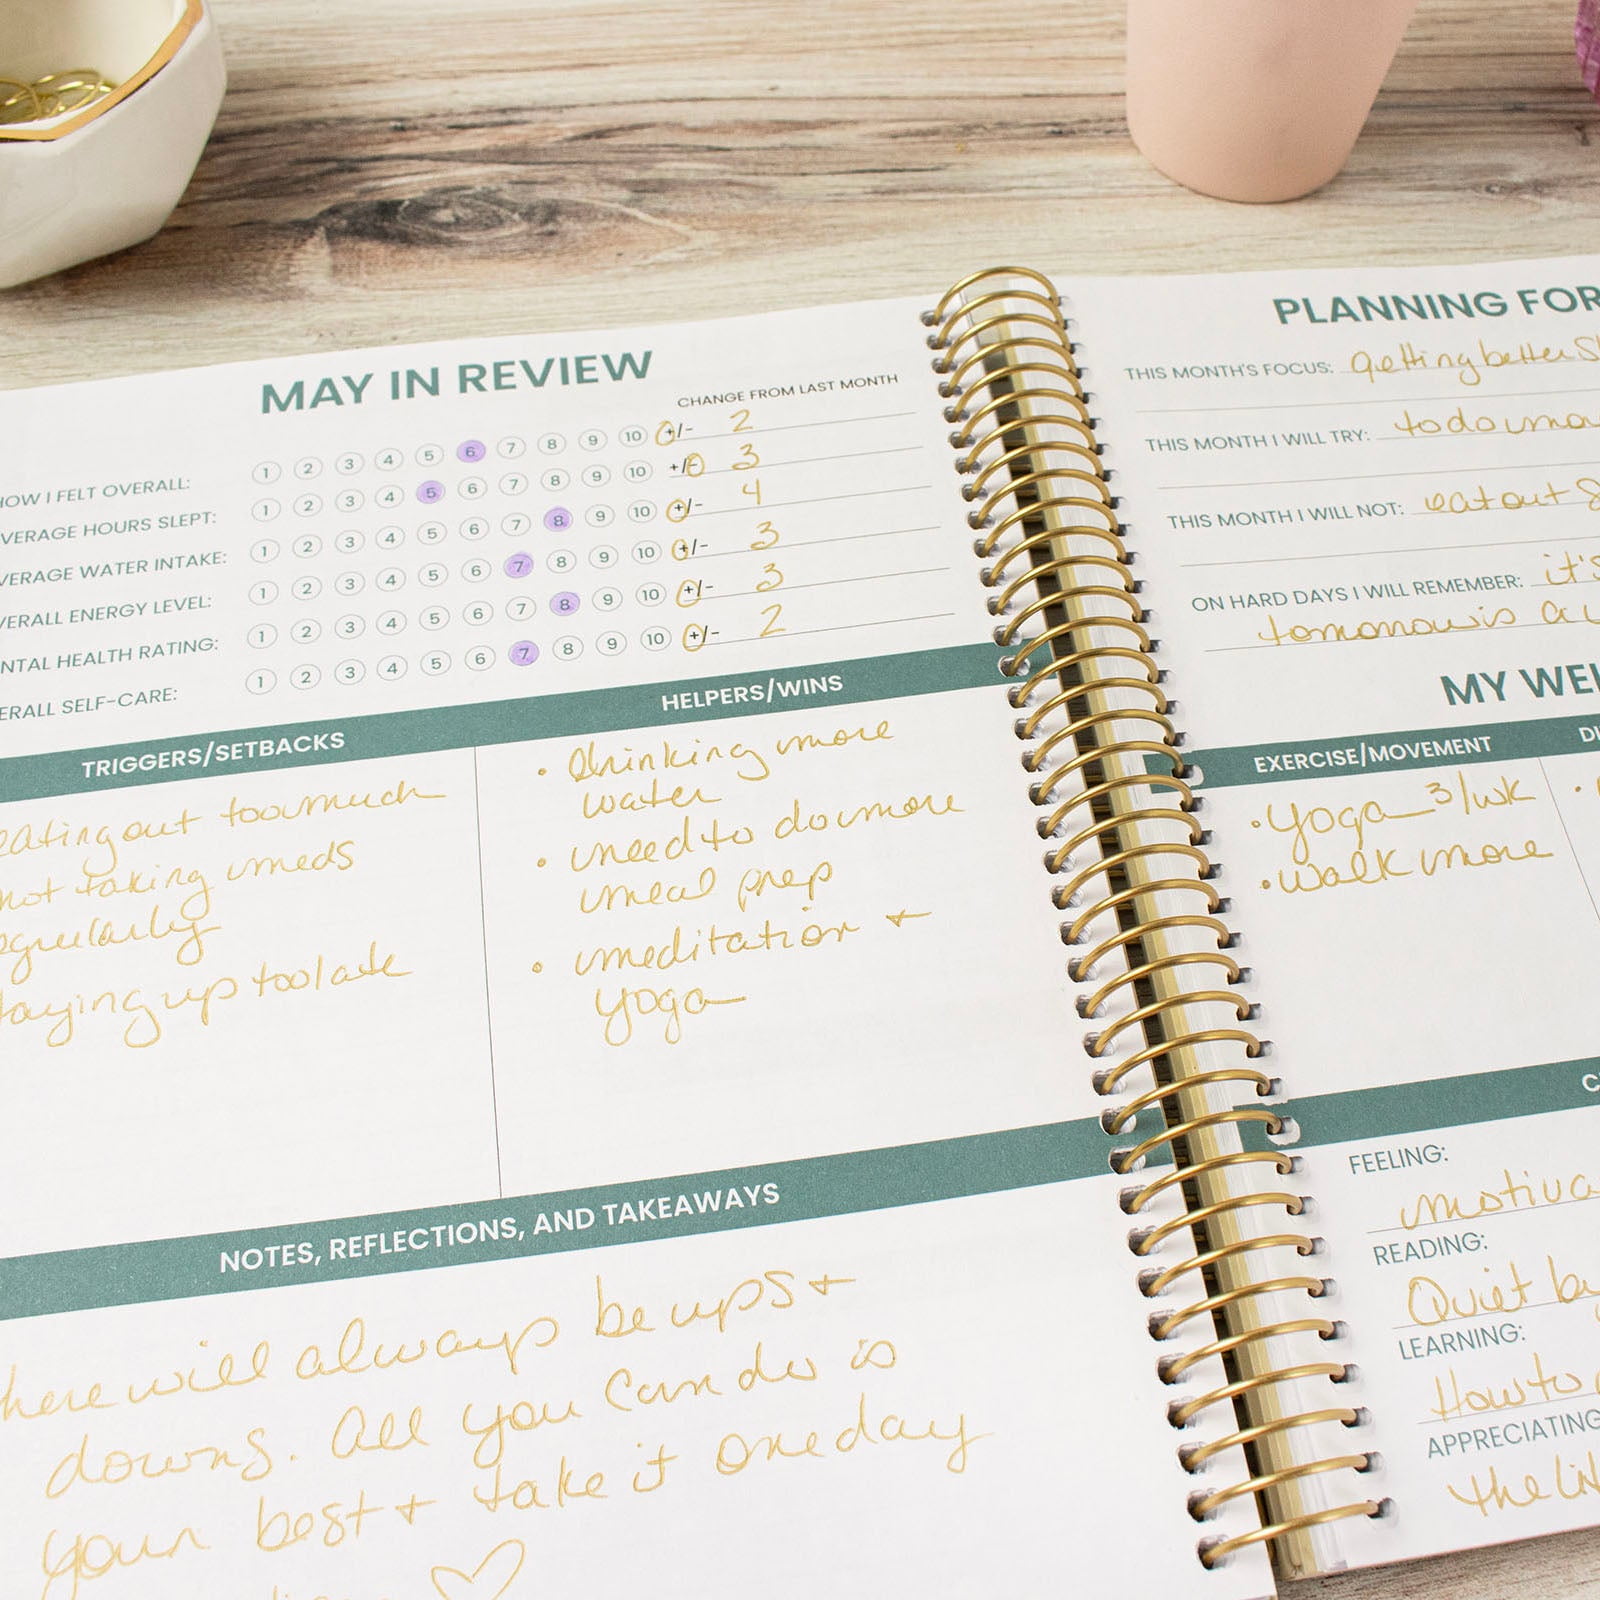 MAY IN REVIEW
CHANGE FROM LAST MONTH
HOW I FELT OVERALL: 1 2 3 4 5 6 7 8 9 10 +/- 2
AVERAGE HOURS SLEPT: 1 2 3 4 5 6 7 8 9 10 +/- 3
AVERAGE WATER INTAKE: 1 2 3 4 5 6 7 8 9 10 +/- 4
OVERALL ENERGY LEVEL: 1 2 3 4 5 6 7 8 9 10 +/- 3
MENTAL HEALTH RATING: 1 2 3 4 5 6 7 8 9 10 +/- 3
OVERALL SELF-CARE: 1 2 3 4 5 6 7 8 9 10 +/- 2
TRIGGERS/SETBACKS
eating out too much
not taking meds
regularly
staying up too late
HELPERS/WINS
• drinking more
water
• need to do more
meal prep
• meditation +
yoga
NOTES, REFLECTIONS, AND TAKEAWAYS
there will always be ups +
downs. All you can do is
your best + take it one day
PLANNING FOR
THIS MONTH'S FOCUS: getting better
THIS MONTH I WILL TRY: to do
THIS MONTH I WILL NOT: eat out
ON HARD DAYS I WILL REMEMBER: it's
tomorrow is a
MY
EXERCISE/MOVEMENT
• yoga 3/wk
• walk more
FEELING:
READING:
Quiet by
LEARNING:
How to
APPRECIATING
the